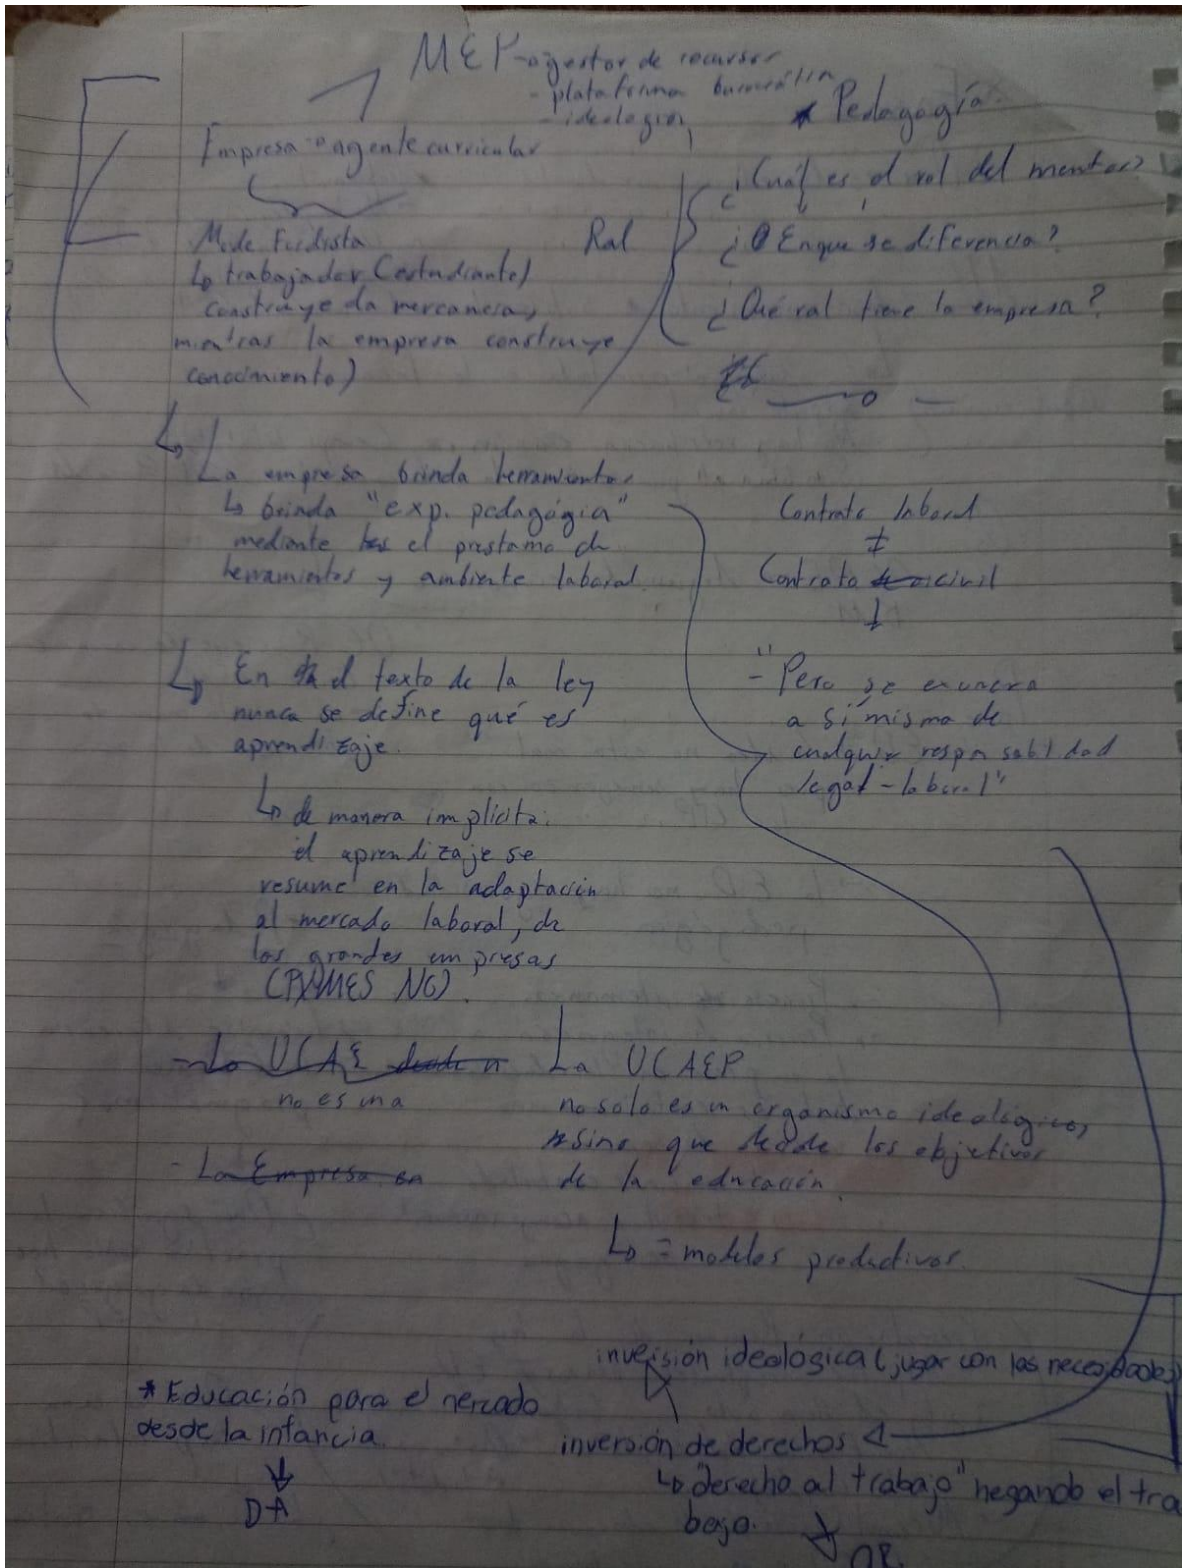 MEP → gestor de recursos
- plataforma burocrática
- ideología
Empresa = agente curricular
Mode Fordista
↳ trabajador (estudiante)
construye la mercancía,
mientras la empresa construye
conocimiento)
* Pedagogía
Rol
¿Cuál es el rol del mentor?
¿En que se diferencia?
¿Qué rol tiene la empresa?
↳ La empresa brinda herramientas
↳ brinda "exp. pedagógia"
mediante el prestamo de
herramientas y ambiente laboral.
Contrato laboral
≠
Contrato civil
↓
- "Pero se exonera
a sí misma de
cualquier responsabilidad
legal-laboral"
↳ En el texto de la ley
nunca se define qué es
aprendizaje.
↳ de manera implícita.
el aprendizaje se
resume en la adaptación
al mercado laboral, de
las grandes empresas
(PYMES NO).
- La UCAE
no es una
- La Empresa en
La UCAEP
no solo es un organismo ideológico,
sino que decide los objetivos
de la educación.
↳ = modelos productivos
inversión ideológica (jugar con las necesidades)
inversión de derechos
↳ "derecho al trabajo" negando el tra
bajo.
* Educación para el mercado
desde la infancia.
↓
DA